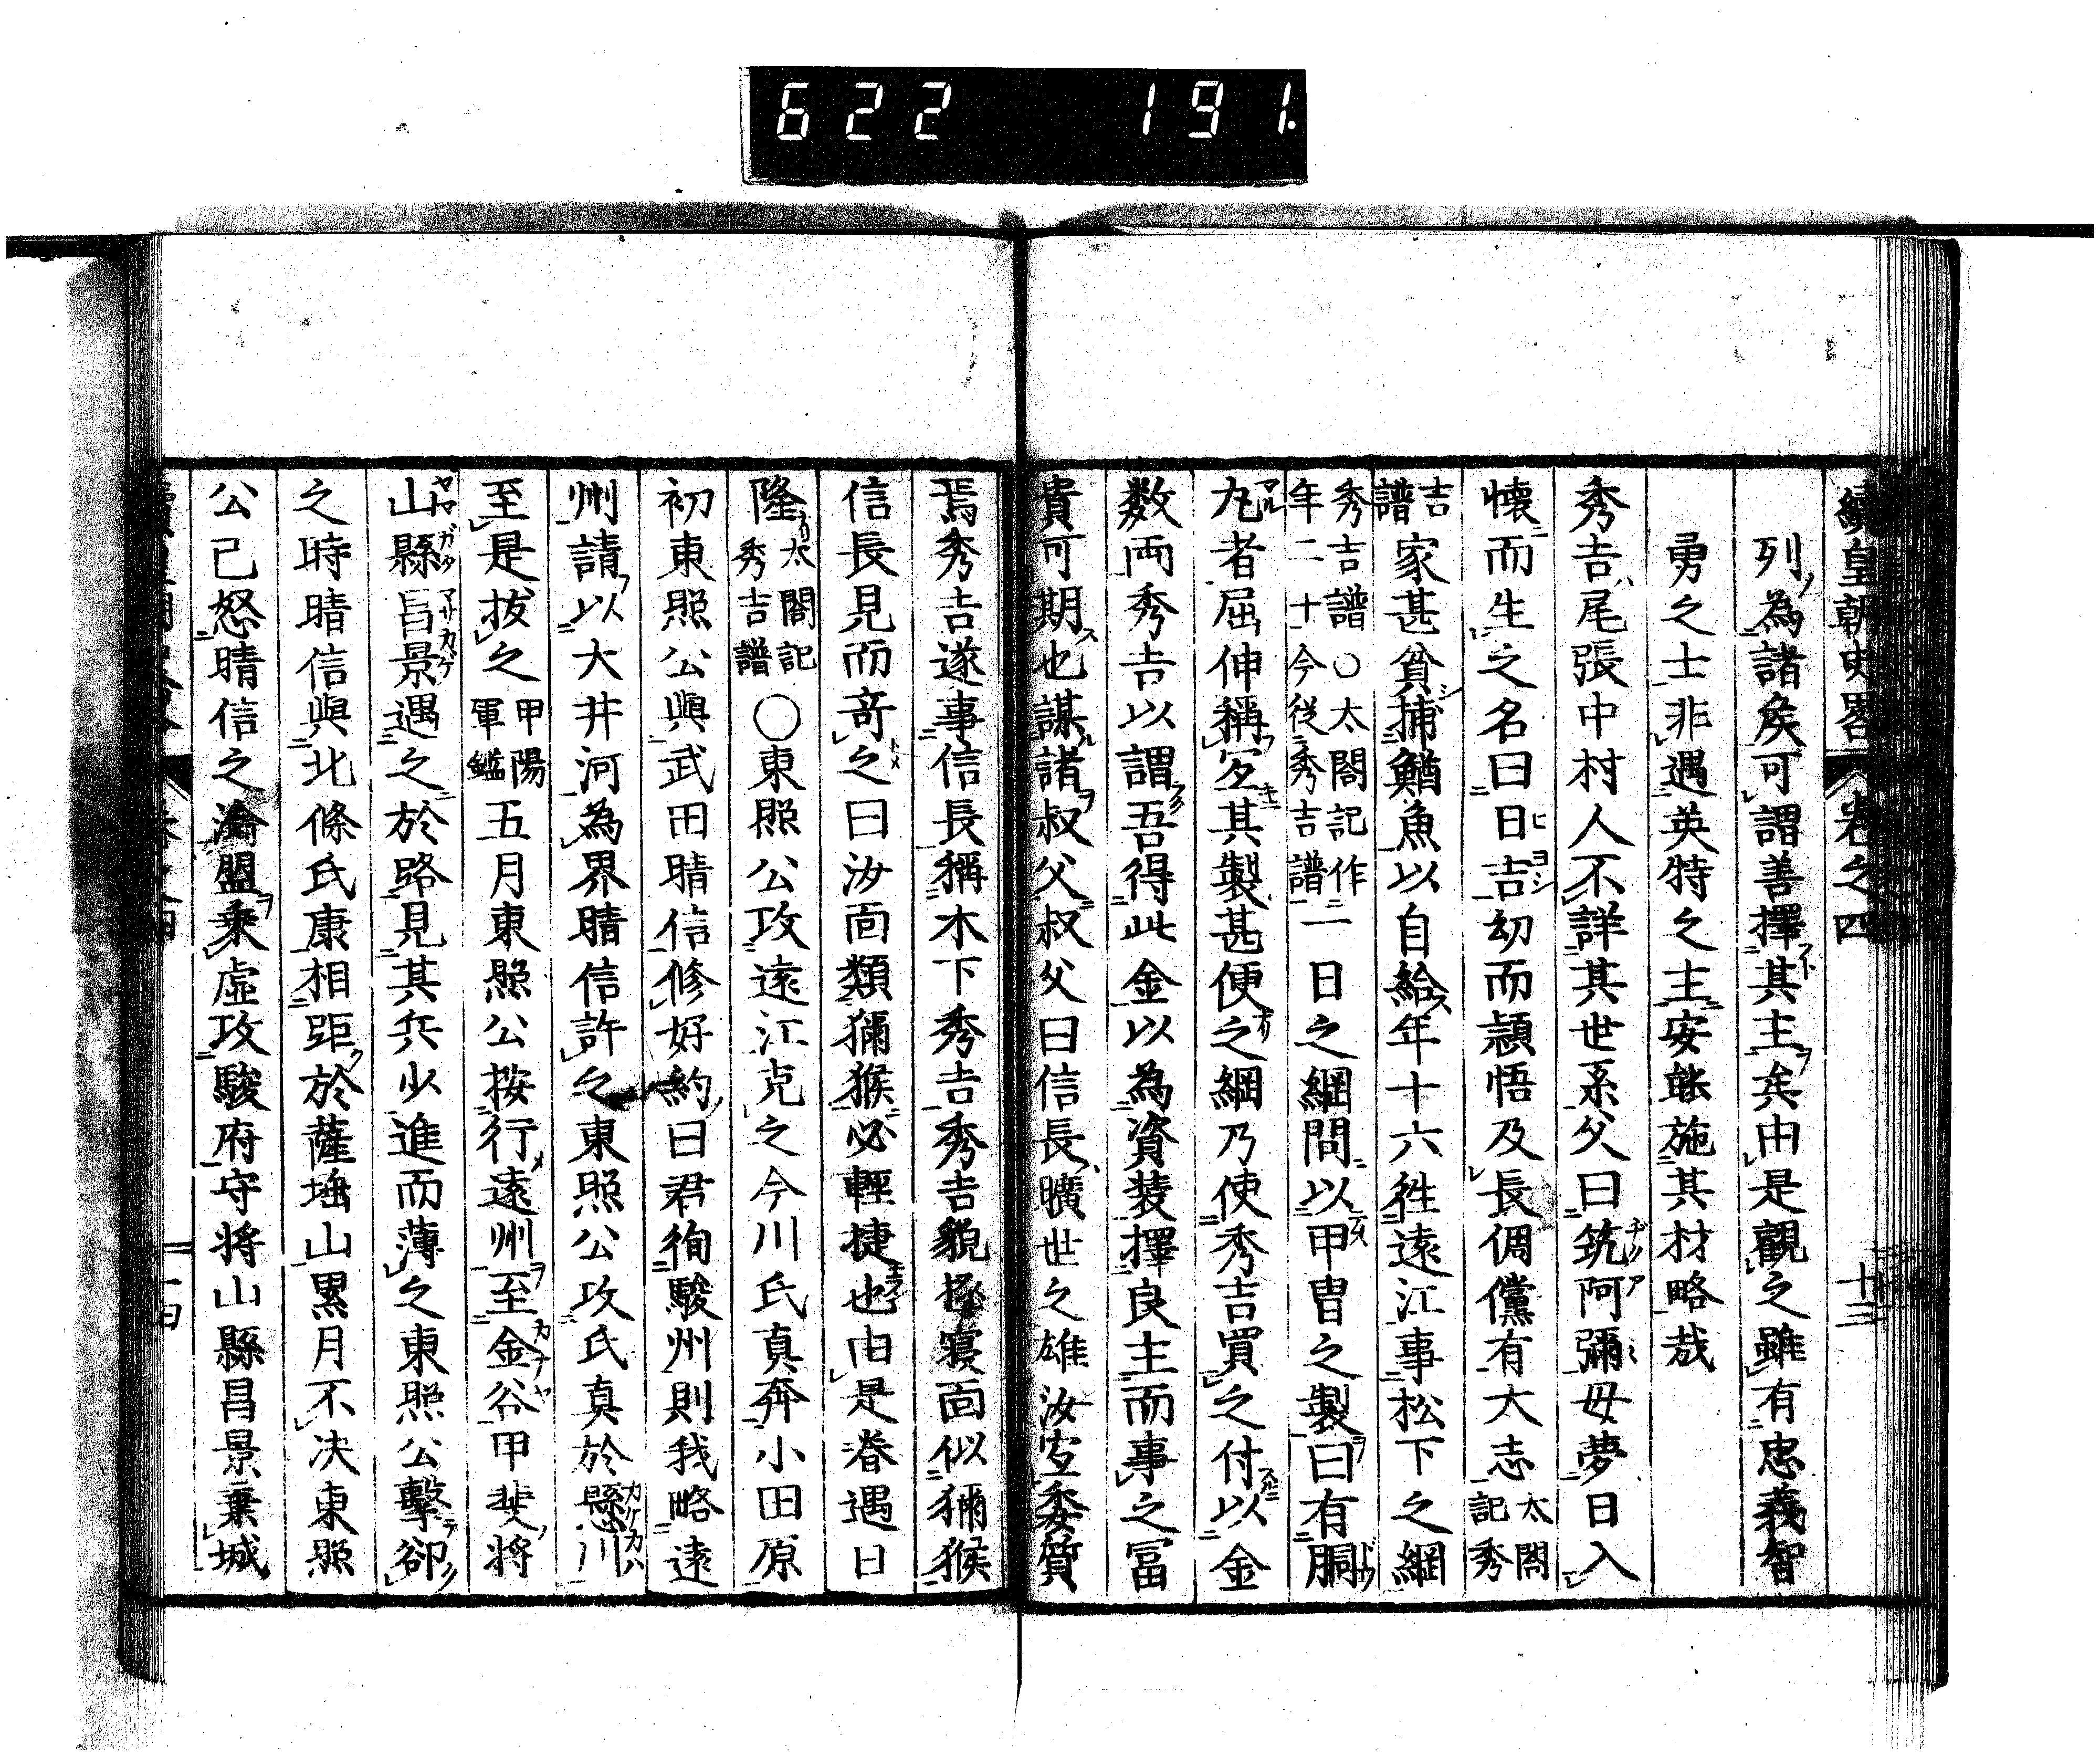 622 191.
續皇朝史畧 卷之四 十三
列為諸矦可謂善擇其主矣由是觀之雖有忠義智
勇之士非遇英特之主安能施其材略哉
秀吉尾張中村人不詳其世系父曰筑阿彌母夢日入
懷而生之名曰日吉幼而穎悟及長倜儻有大志太閤記秀
吉譜家甚貧捕鰌魚以自給年十六往遠江事松下之綱
秀吉譜○太閤記作年二十今從秀吉譜一日之綱問以甲冑之製曰有胴
丸者屈伸稱宜其製甚便之綱乃使秀吉買之付以金
数両秀吉以謂吾得此金以為資装擇良主而事之冨
貴可期也謀諸叔父叔父曰信長曠世之雄汝宜委質
焉秀吉遂事信長稱木下秀吉秀吉貌極寝面似獼猴
信長見而竒之曰汝面類獼猴必輕捷也由是眷遇日
隆太閤記秀吉譜○東照公攻遠江克之今川氏真奔小田原
初東照公與武田晴信修好約曰君徇駿州則我略遠
州請以大井河為界晴信許之東照公攻氏真於懸川
至是抜之甲陽軍鑑五月東照公按行遠州至金谷甲斐将
山縣昌景遇之於路見其兵少進而薄之東照公擊卻
之時晴信與北條氏康相距於薩埵山累月不决東照
公已怒晴信之渝盟乗虚攻駿府守将山縣昌景棄城